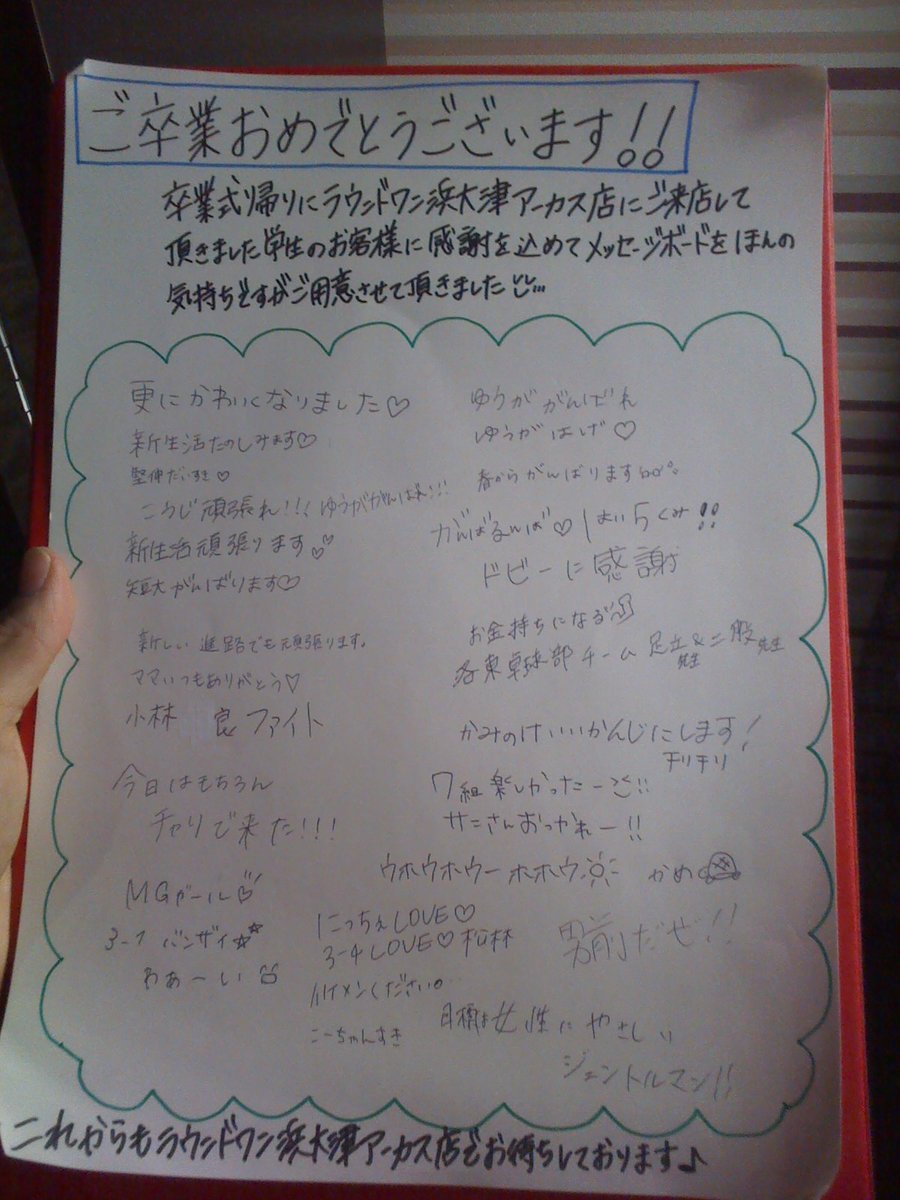 ご卒業おめでとうございます!!
卒業式帰りにラウンドワン浜大津アーカス店にご来店して
頂きました学生のお客様に感謝を込めてメッセージボードをほんの
気持ちですがご用意させて頂きました
更にかわいくなりました♡
新生活たのしみます♡
堅伸だいすき♡
こうじ頑張れ!!! ゆうががんばれ!!!
新生活頑張ります
短大がんばります♡
新しい進路でも頑張ります。
ママいつもありがとう♡
小林 良ファイト
今日はもちろん
チャリで来た!!!
MGガール
3-7 バンザイ
わぁーい
ゆうが がんばれ
ゆうが はげ♡
春からがんばります
がんばるんば♡ はい5くみ!!
ドビーに感謝
お金持ちになるぞ
卓球部 チーム 足立先生&二股先生
かみのけいいかんじにします!
チリチリ
7組楽しかったー!!
サニさんおつかれー!!
ウホウホウーホホウ かめ
にっちぇLOVE♡
3-4LOVE♡松林
イケメンください。
こーちゃんすき
男前だぜ!!
目標は女性にやさしい
ジェントルマン!!
これからもラウンドワン浜大津アーカス店でお待ちしております♪